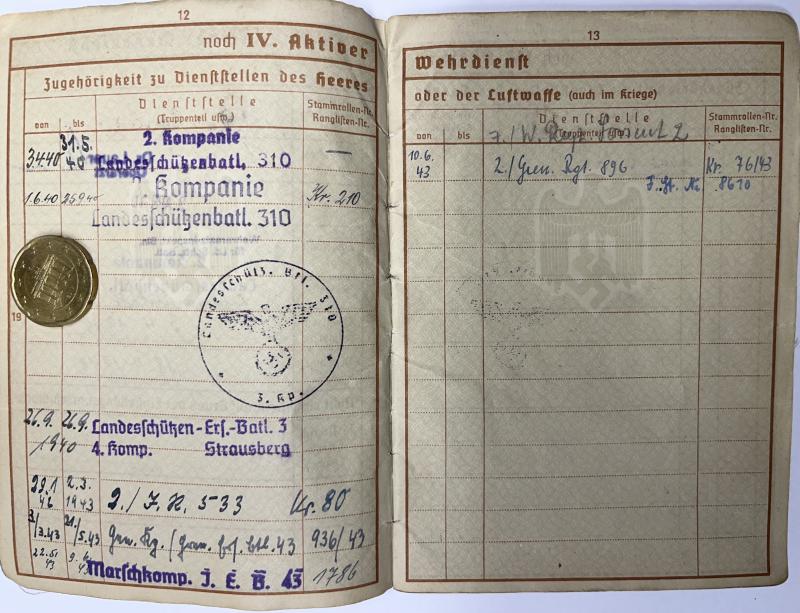 12
noch IV. Aktiver
Zugehörigkeit zu Dienststellen des Heeres
von
bis
Dienststelle
(Truppenteil usw.)
Stammrollen-Nr.
Ranglisten-Nr.
3.4.40
31.5.
40
2. Kompanie
Landesschützenbatl. 310
—
1.6.40
25.9.40
Kompanie
Landesschützenbatl. 310
Kr. 210
Landesschütz. Btl. 310
3. Kp.
19
26.9.
1940
26.9.
Landesschützen-Ers.-Batl. 3
4. Komp. Strausberg
29.1
2.3.
1943
2./J.R. 533
Kr. 80
3./
3.43
21./
5.43
43
936/43
22.5.
43
43
Marschkomp. J. E. B. 43
1786
13
Wehrdienst
oder der Luftwaffe (auch im Kriege)
von
bis
Dienststelle
(Truppenteil usw.)
Stammrollen-Nr.
Ranglisten-Nr.
10.6.
43
2./Gren. Rgt. 896
Kr. 76/43
8610